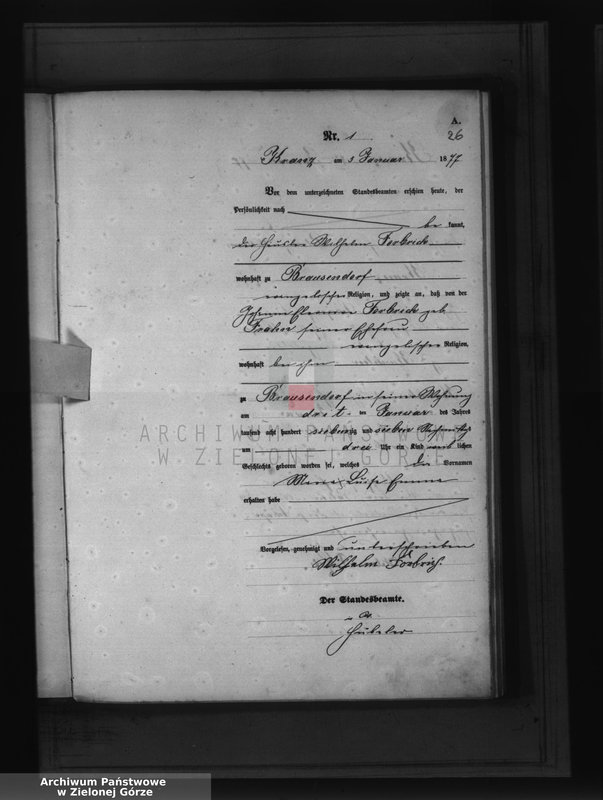 A.
26
Nr. 1
Kranz am 5 Januar 1877
Vor dem unterzeichneten Standesbeamten erschien heute, der
Persönlichkeit nach
be kannt,
der Häusler Wilhelm
wohnhaft zu Brausendorf
evangelischer Religion, und zeigte an, daß von der
geb.
seiner Ehefrau
evangelischer Religion,
wohnhaft bei ihm
zu Brausendorf in seiner Wohnung
am drit ten Januar des Jahres
tausend acht hundert siebenzig und sieben Nachmittags
um drei Uhr ein Kind weib lichen
Geschlechts geboren worden sei, welches die Vornamen
Luise Emma
erhalten habe
Vorgelesen, genehmigt und unterschrieben
Wilhelm
Der Standesbeamte.
ARCHIWUM PAŃSTWOWE
W ZIELONEJ GÓRZE
Archiwum Państwowe
w Zielonej Górze